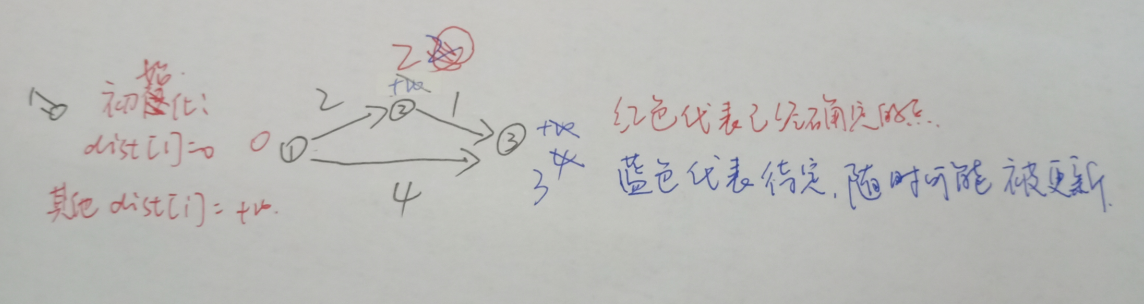 1>
初始化:
dist[i]=0
其他 dist[i]=+∞.
0
①
2
②
+∞
2
1
③
+∞
4
3
4
红色代表已经确定的点.
蓝色代表待定,随时可能被更新.